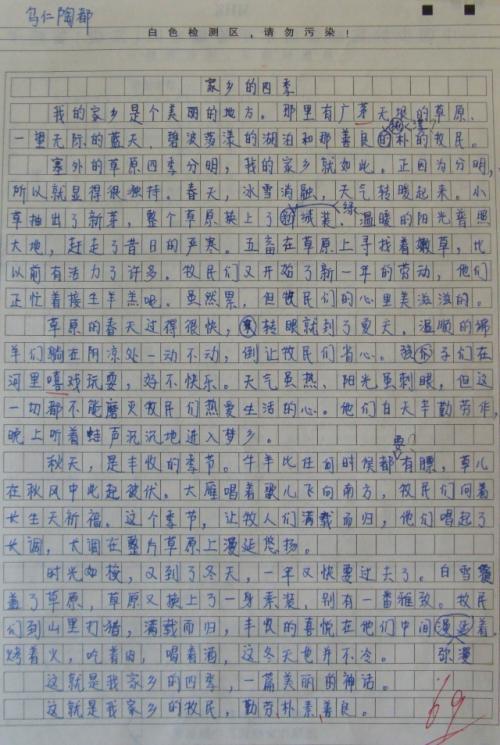 乌仁陶都
白色检测区，请勿污染！
家乡的四季
我的家乡是个美丽的地方。那里有广茅无垠的草原、
一望无际的蓝天、碧波荡漾的湖泊和那善良的朴的牧民。
塞外的草原四季分明，我的家乡就如此。正因为分明，
所以就显得很独特。春天，冰雪消融，天气转暖起来。小
草抽出了新芽，整个草原换上了绿装。温暖的阳光普照
大地，赶走了昔日的严寒。五畜在草原上寻找着嫩草，比
以前有活力了许多。牧民们又开始了新一年的劳动，他们
正忙着接生羊羔呢。虽然累，但牧民们的心里美滋滋的。
草原的春天过得很快，转眼就到了夏天。温顺的绵
羊们躺在阴凉处一动不动，倒让牧民们省心。孩子们在
河里嘻戏玩耍，好不快乐。天气虽热、阳光虽刺眼，但这
一切都不能磨灭牧民们热爱生活的心。他们白天辛勤劳作，
晚上听着蛙声沉沉地进入梦乡。
秋天，是丰收的季节。牛羊比任何时候都有膘，草儿
在秋风中此起彼伏。大雁唱着歌儿飞向南方，牧民们向着
长生天祈福。这个季节，让牧人们满载而归，他们唱起了
长调，长调在整片草原上漫延悠扬。
时光如梭，又到了冬天，一年又快要过去了。白雪覆
盖了草原，草原又换上了一身素装，别有一番雅致。牧民
们到山里打猎，满载而归，丰收的喜悦在他们中间漫延着。
烤着火，吃着肉，喝着酒，这冬天也并不冷。
弥漫
这就是我家乡的四季，一篇美丽的神话。
这就是我家乡的牧民，勤劳、朴素、善良。
69